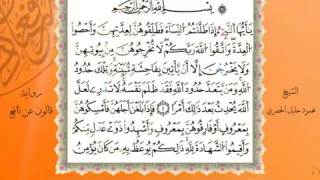 بِسْمِ اللَّهِ الرَّحْمَٰنِ الرَّحِيمِ
يَٰأَيُّهَا النَّبِيءُ إِذَا طَلَّقْتُمُ النِّسَاءَ فَطَلِّقُوهُنَّ لِعِدَّتِهِنَّ وَأَحْصُوا
الْعِدَّةَ وَاتَّقُوا اللَّهَ رَبَّكُمْ لَا تُخْرِجُوهُنَّ مِن بُيُوتِهِنَّ
وَلَا يَخْرُجْنَ إِلَّا أَن يَأْتِينَ بِفَاحِشَةٍ مُّبَيِّنَةٍ وَتِلْكَ حُدُودُ
اللَّهِ وَمَن يَتَعَدَّ حُدُودَ اللَّهِ فَقَد ظَّلَمَ نَفْسَهُ لَا تَدْرِي لَعَلَّ
اللَّهَ يُحْدِثُ بَعْدَ ذَٰلِكَ أَمْرًا ١ فَإِذَا بَلَغْنَ أَجَلَهُنَّ فَأَمْسِكُوهُنَّ
بِمَعْرُوفٍ أَوْ فَارِقُوهُنَّ بِمَعْرُوفٍ وَأَشْهِدُوا ذَوَيْ عَدْلٍ مِّنكُمْ
وَأَقِيمُوا الشَّهَادَةَ لِلَّهِ ذَٰلِكُمْ يُوعَظُ بِهِ مَن كَانَ يُؤْمِنُ
الشيخ
محمود خليل الحصري
رواية
قالون عن نافع